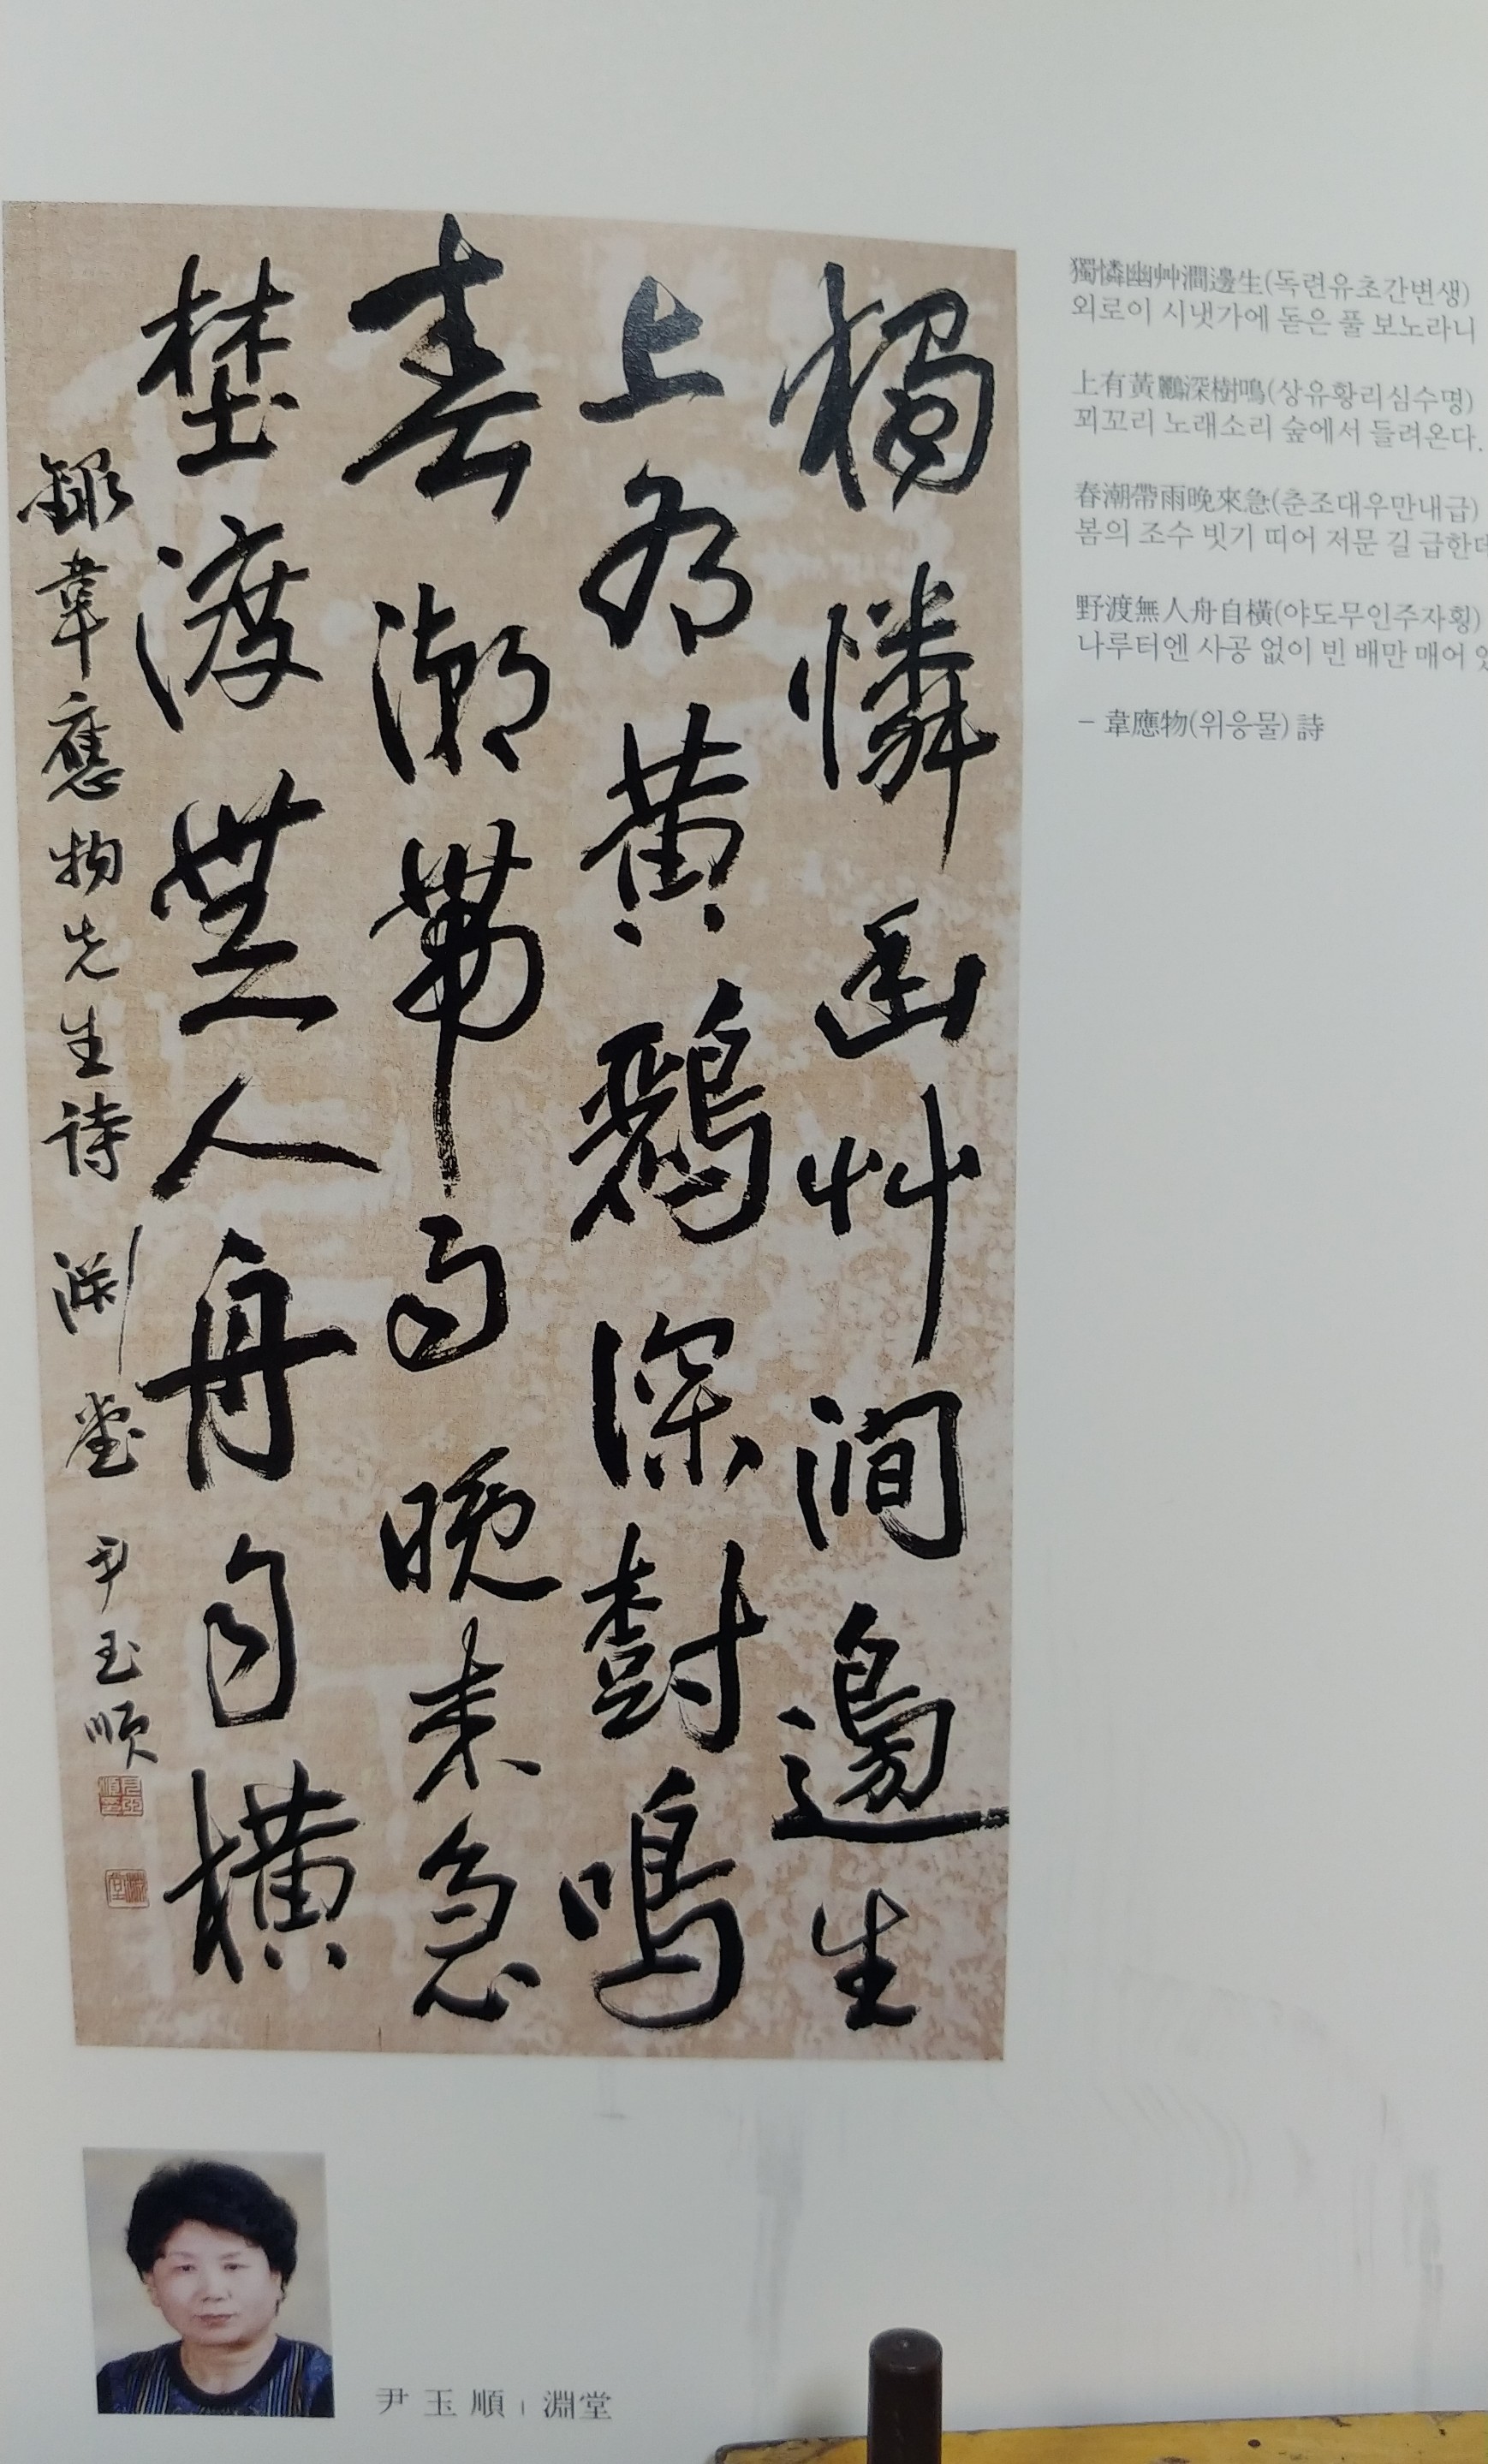 獨憐幽艸澗邊生
上有黃鸝深樹鳴
春潮帶雨晚來急
埜渡無人舟自橫
錄韋應物先生詩 淵堂 尹玉順
獨憐幽艸澗邊生(독련유초간변생)
외로이 시냇가에 돋은 풀 보노라니
上有黃鸝深樹鳴(상유황리심수명)
꾀꼬리 노래소리 숲에서 들려온다.
春潮帶雨晚來急(춘조대우만내급)
봄의 조수 빗기 띠어 저문 길 급한데
野渡無人舟自橫(야도무인주자횡)
나루터엔 사공 없이 빈 배만 매어
– 韋應物(위응물) 詩
尹玉順 | 淵堂